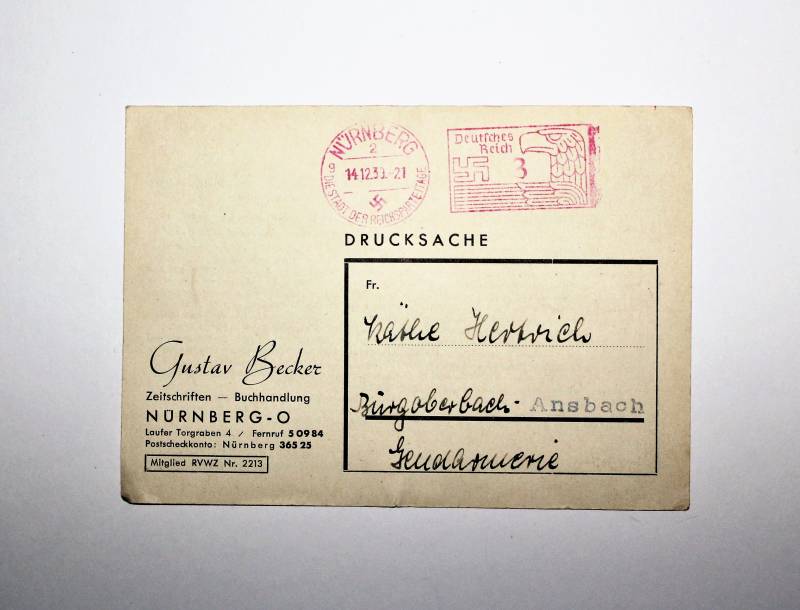 NÜRNBERG
2
g
14.12.39.-21
DIE STADT DER REICHSPARTEITAGE
Deutsches
Reich
3
DRUCKSACHE
Fr.
Käthe Hertrich
Burgoberbach- Ansbach
Gendarmerie
Gustav Becker
Zeitschriften — Buchhandlung
NÜRNBERG-O
Laufer Torgraben 4 / Fernruf 5 09 84
Postscheckkonto: Nürnberg 365 25
Mitglied RVWZ Nr. 2213